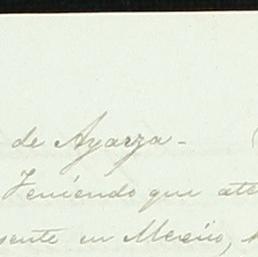 de Ayarza-
Teniendo que ate
sente en